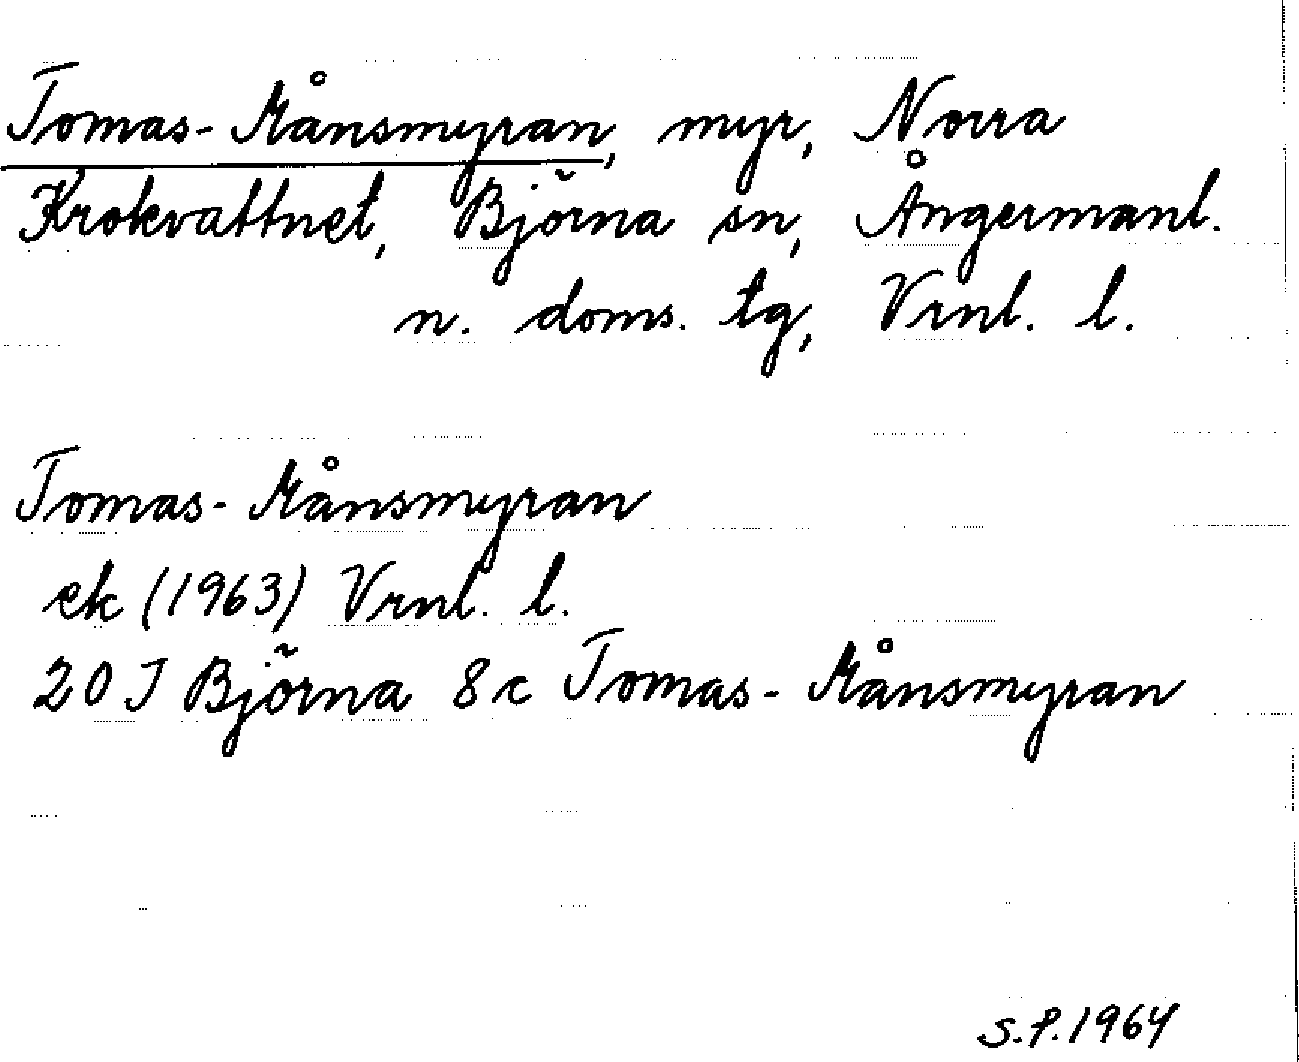 Tomas-Månsmyran, myr, Norra
Krokvattnet, Björna sn, Ångermanl.
n. doms. tg, Vrnl. l.
Tomas-Månsmyran
ek (1963) Vrnl. l.
20 J Björna 8 c Tomas-Månsmyran
S.P. 1964